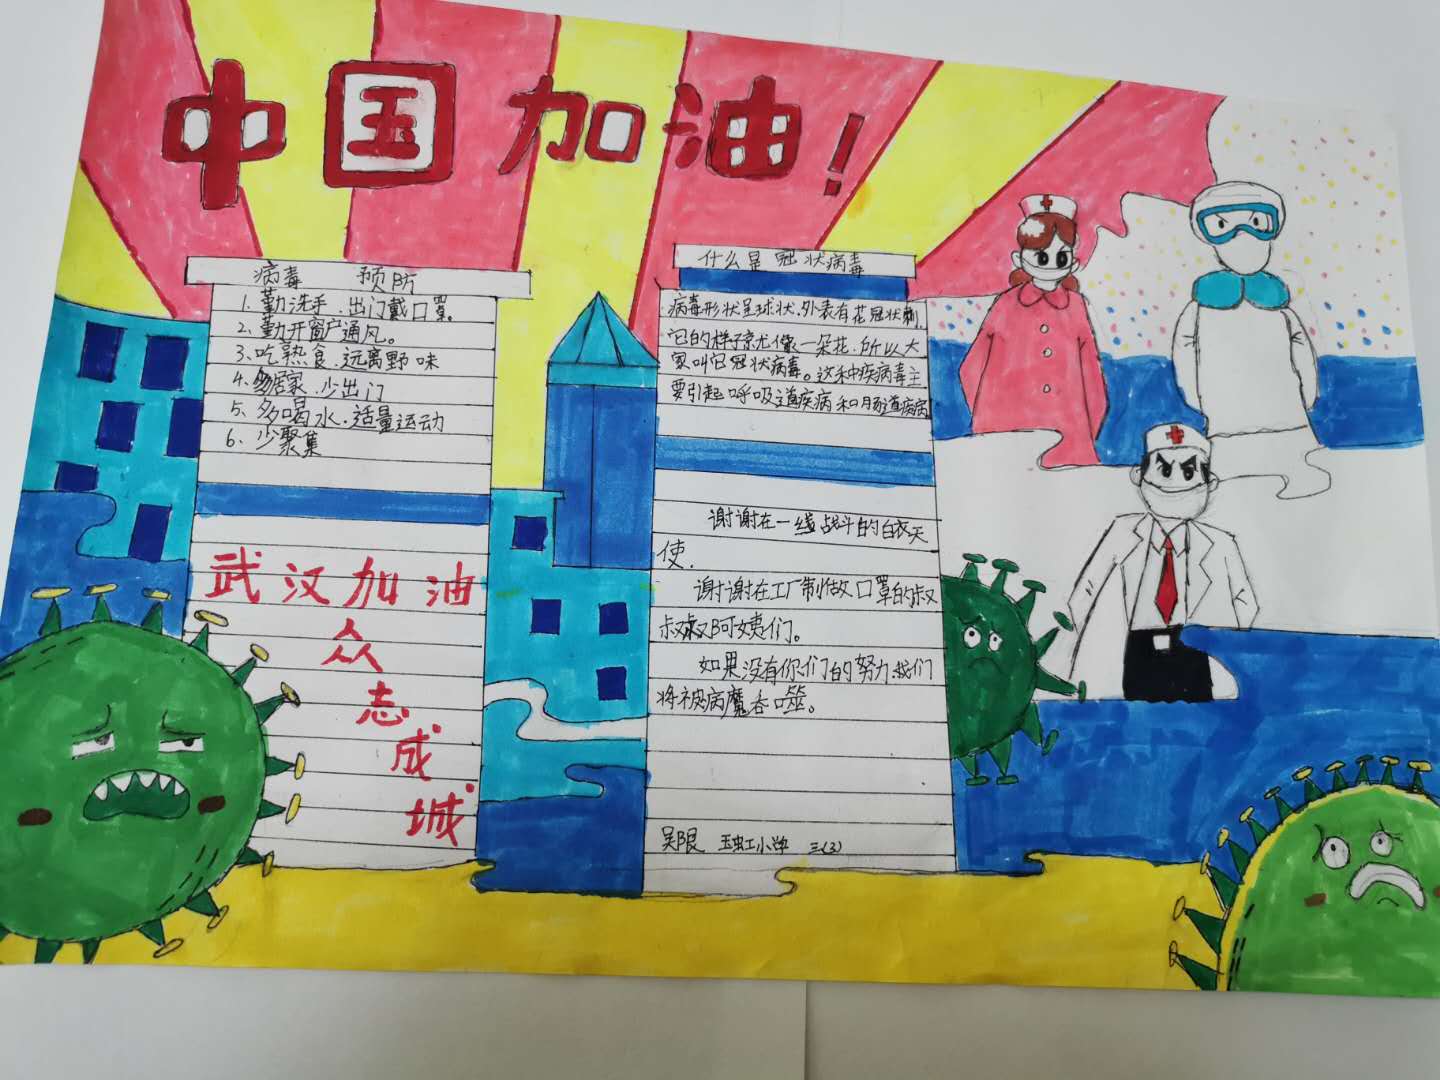 中国加油!
病毒 预防
1. 勤洗手、出门戴口罩。
2. 勤开窗户通风。
3、吃熟食、远离野味
4、多居家、少出门
5、多喝水、适量运动
6、少聚集
武汉加油
众
志
成
城
什么是冠状病毒
病毒形状呈球状,外表有花冠状刺,
它的样子竟尤像一朵花,所以大
家叫它冠状病毒。这种疾病毒主
要引起呼吸道疾病和肠道疾病
谢谢在一线战斗的白衣天
使.
谢谢在工厂制做口罩的叔
叔叔阿姨们。
如果没有你们的努力,我们
将被病魔吞噬。
吴限 玉虹小学 三(3)